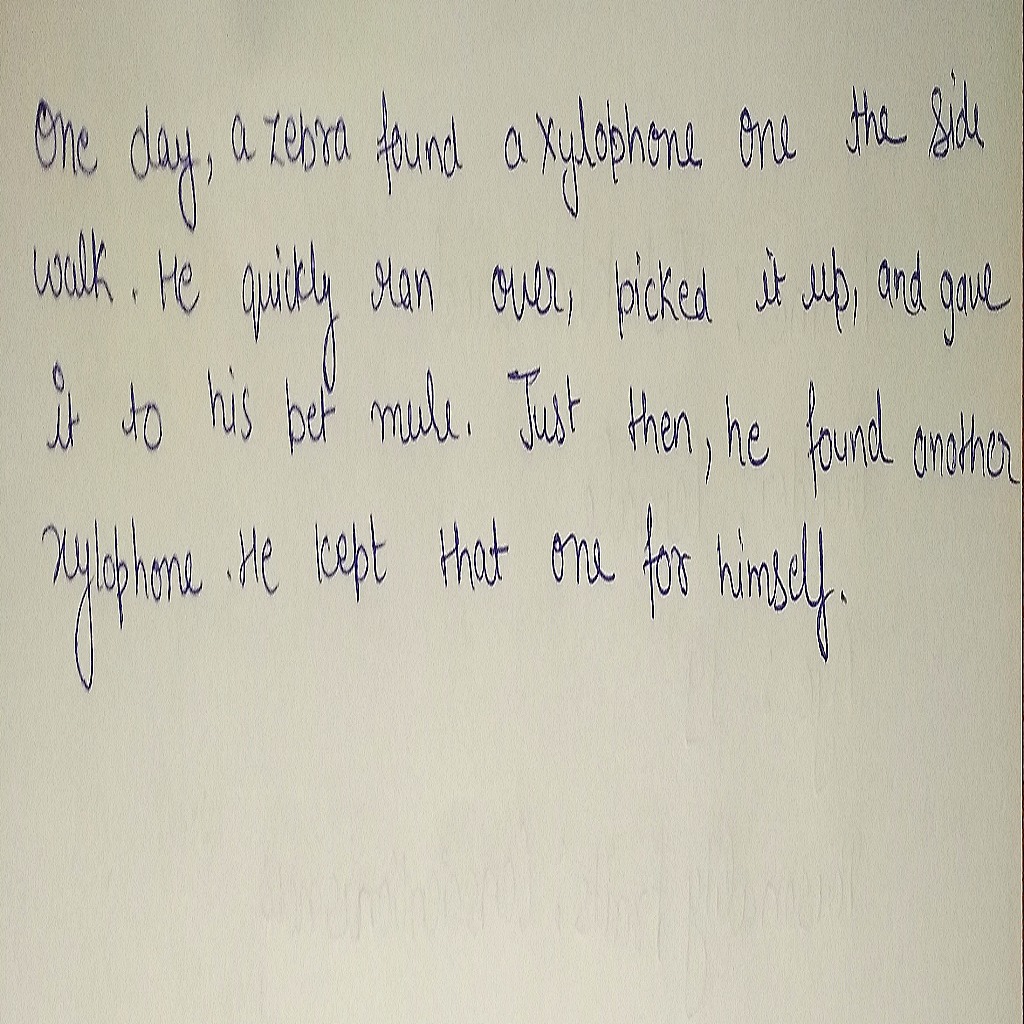 One day, a zebra found a xylophone one the side
walk. He quickly ran over, picked it up, and gave
it to his pet mule. Just then, he found another
xylophone. He kept that one for himself.